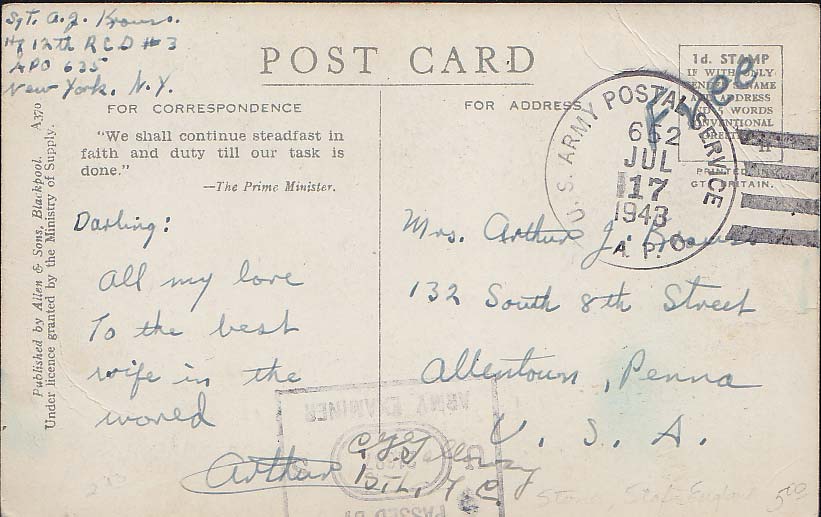 Sgt. A. J. Kraus.
Hq 12th R C D # 3
APO 635
New York, N.Y.
POST CARD
FOR CORRESPONDENCE
FOR ADDRESS
1d. STAMP
IF WITH ONLY
NAME
ADDRESS
5 WORDS
CONVENTIONAL
GREETING
Free
PRINTED IN
GT. BRITAIN.
U.S. ARMY POSTAL SERVICE
652
JUL
17
1943
A. P. O.
"We shall continue steadfast in
faith and duty till our task is
done."
—The Prime Minister.
Published by Allen & Sons, Blackpool. A370
Under licence granted by the Ministry of Supply.
Darling:
All my love
To the best
wife in the
world
Arthur
Mrs. Arthur J. Kraus
132 South 8th Street
Allentown, Penna
U. S. A.
ARMY EXAMINER
PASSED BY